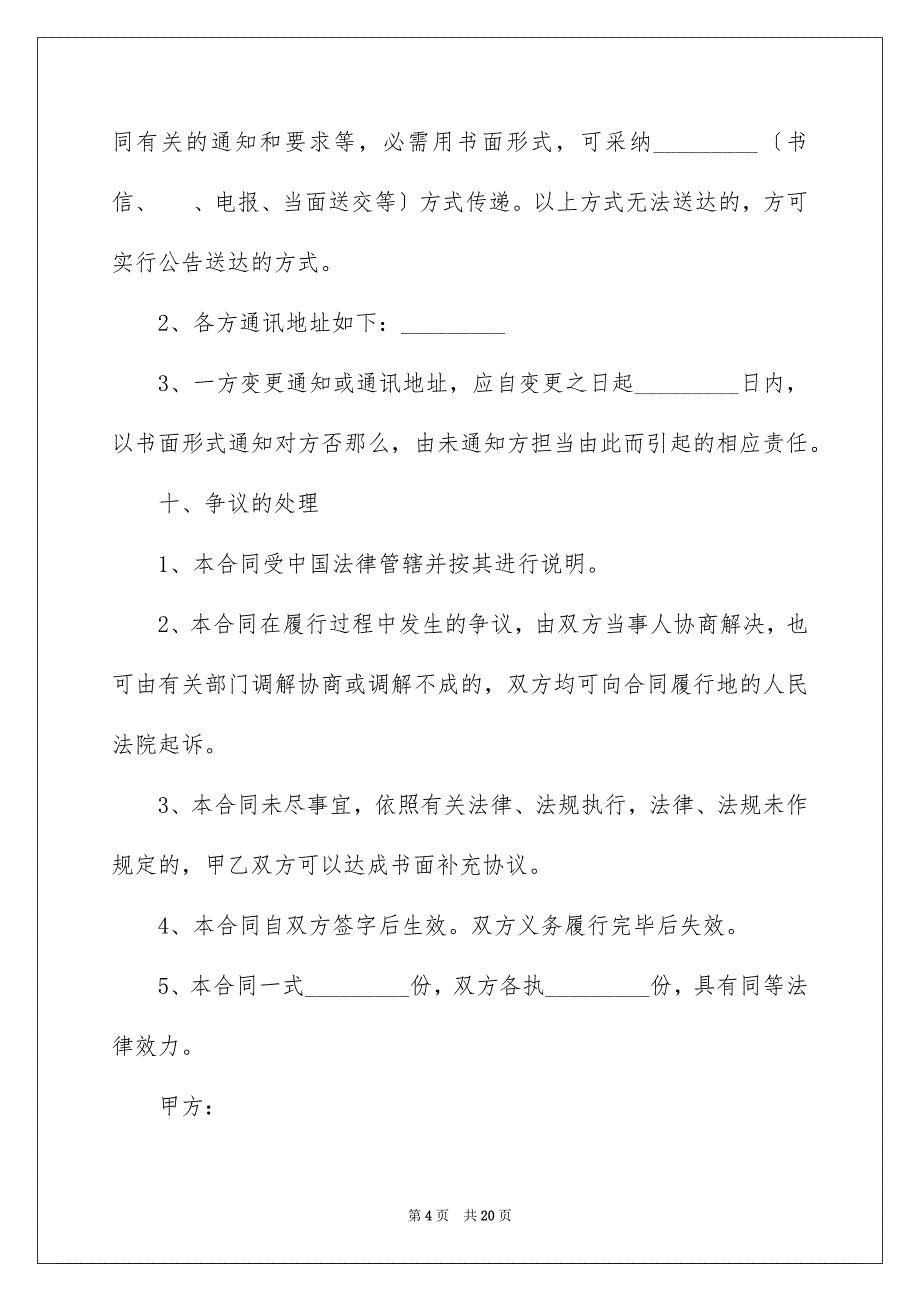 同有关的通知和要求等，必需用书面形式，可采纳_________〔书
信、　　、电报、当面送交等〕方式传递。以上方式无法送达的，方可
实行公告送达的方式。
2、各方通讯地址如下：_________
3、一方变更通知或通讯地址，应自变更之日起_________日内，
以书面形式通知对方否那么，由未通知方担当由此而引起的相应责任。
十、争议的处理
1、本合同受中国法律管辖并按其进行说明。
2、本合同在履行过程中发生的争议，由双方当事人协商解决，也
可由有关部门调解协商或调解不成的，双方均可向合同履行地的人民
法院起诉。
3、本合同未尽事宜，依照有关法律、法规执行，法律、法规未作
规定的，甲乙双方可以达成书面补充协议。
4、本合同自双方签字后生效。双方义务履行完毕后失效。
5、本合同一式_________份，双方各执_________份，具有同等法
律效力。
甲方：
第 4 页　共 20 页